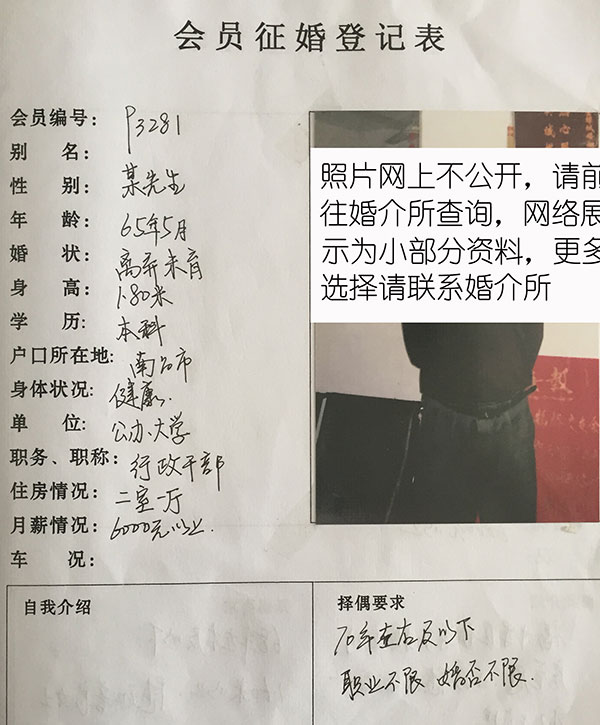 会员征婚登记表
会员编号: P3281
别 名:
性 别: 某先生
年 龄: 65年5月
婚 状: 离异未育
身 高: 1.80米
学 历: 本科
户口所在地: 南昌市
身体状况: 健康.
单 位: 公办大学
职务、职称: 行政干部
住房情况: 二室一厅
月薪情况: 6000元以上.
车 况:
照片网上不公开，请前
往婚介所查询，网络展
示为小部分资料，更多
选择请联系婚介所
自我介绍
择偶要求
70年左右及以下
职业不限 婚否不限.